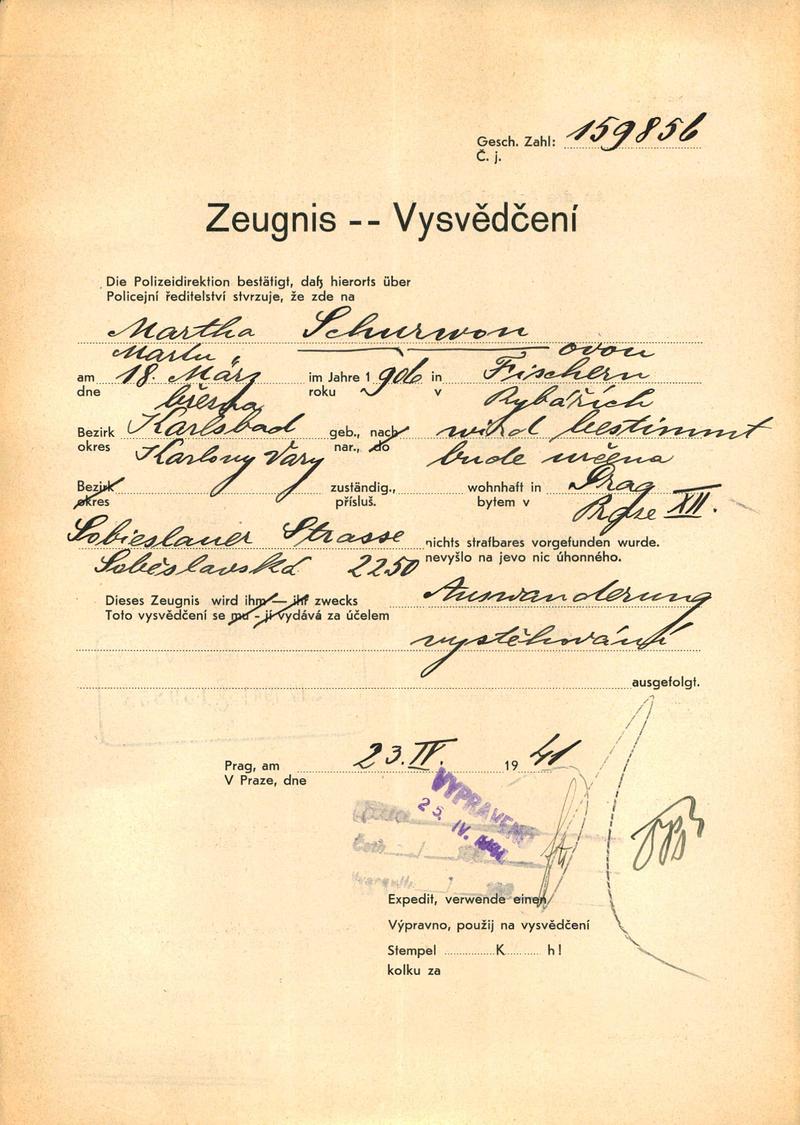 Gesch. Zahl: 159856
Č. j.
Zeugnis -- Vysvědčení
Die Polizeidirektion bestätigt, daß hierorts über
Policejní ředitelství stvrzuje, že zde na
Martha Schurwon
ovou
am 18. März im Jahre 1906 in Fischern
dne března roku v Rybářích
Bezirk Karlsbad geb., nach wird bestimmt
okres Karlovy Vary nar., do bude určena
Bezirk zuständig., wohnhaft in Prag
okres přísluš. bytem v Praze XII.
Sobieslauer Strasse nichts strafbares vorgefunden wurde.
Soběslavská 2250 nevyšlo na jevo nic úhonného.
Dieses Zeugnis wird ihm — ihr zwecks Auswanderung
Toto vysvědčení se mu - jí vydává za účelem
vystěhování
ausgefolgt.
Prag, am 23. IV. 1941
V Praze, dne
VYPRAVENO
25. IV. 1941
Expedit, verwende einen
Výpravno, použij na vysvědčení
Stempel K h!
kolku za